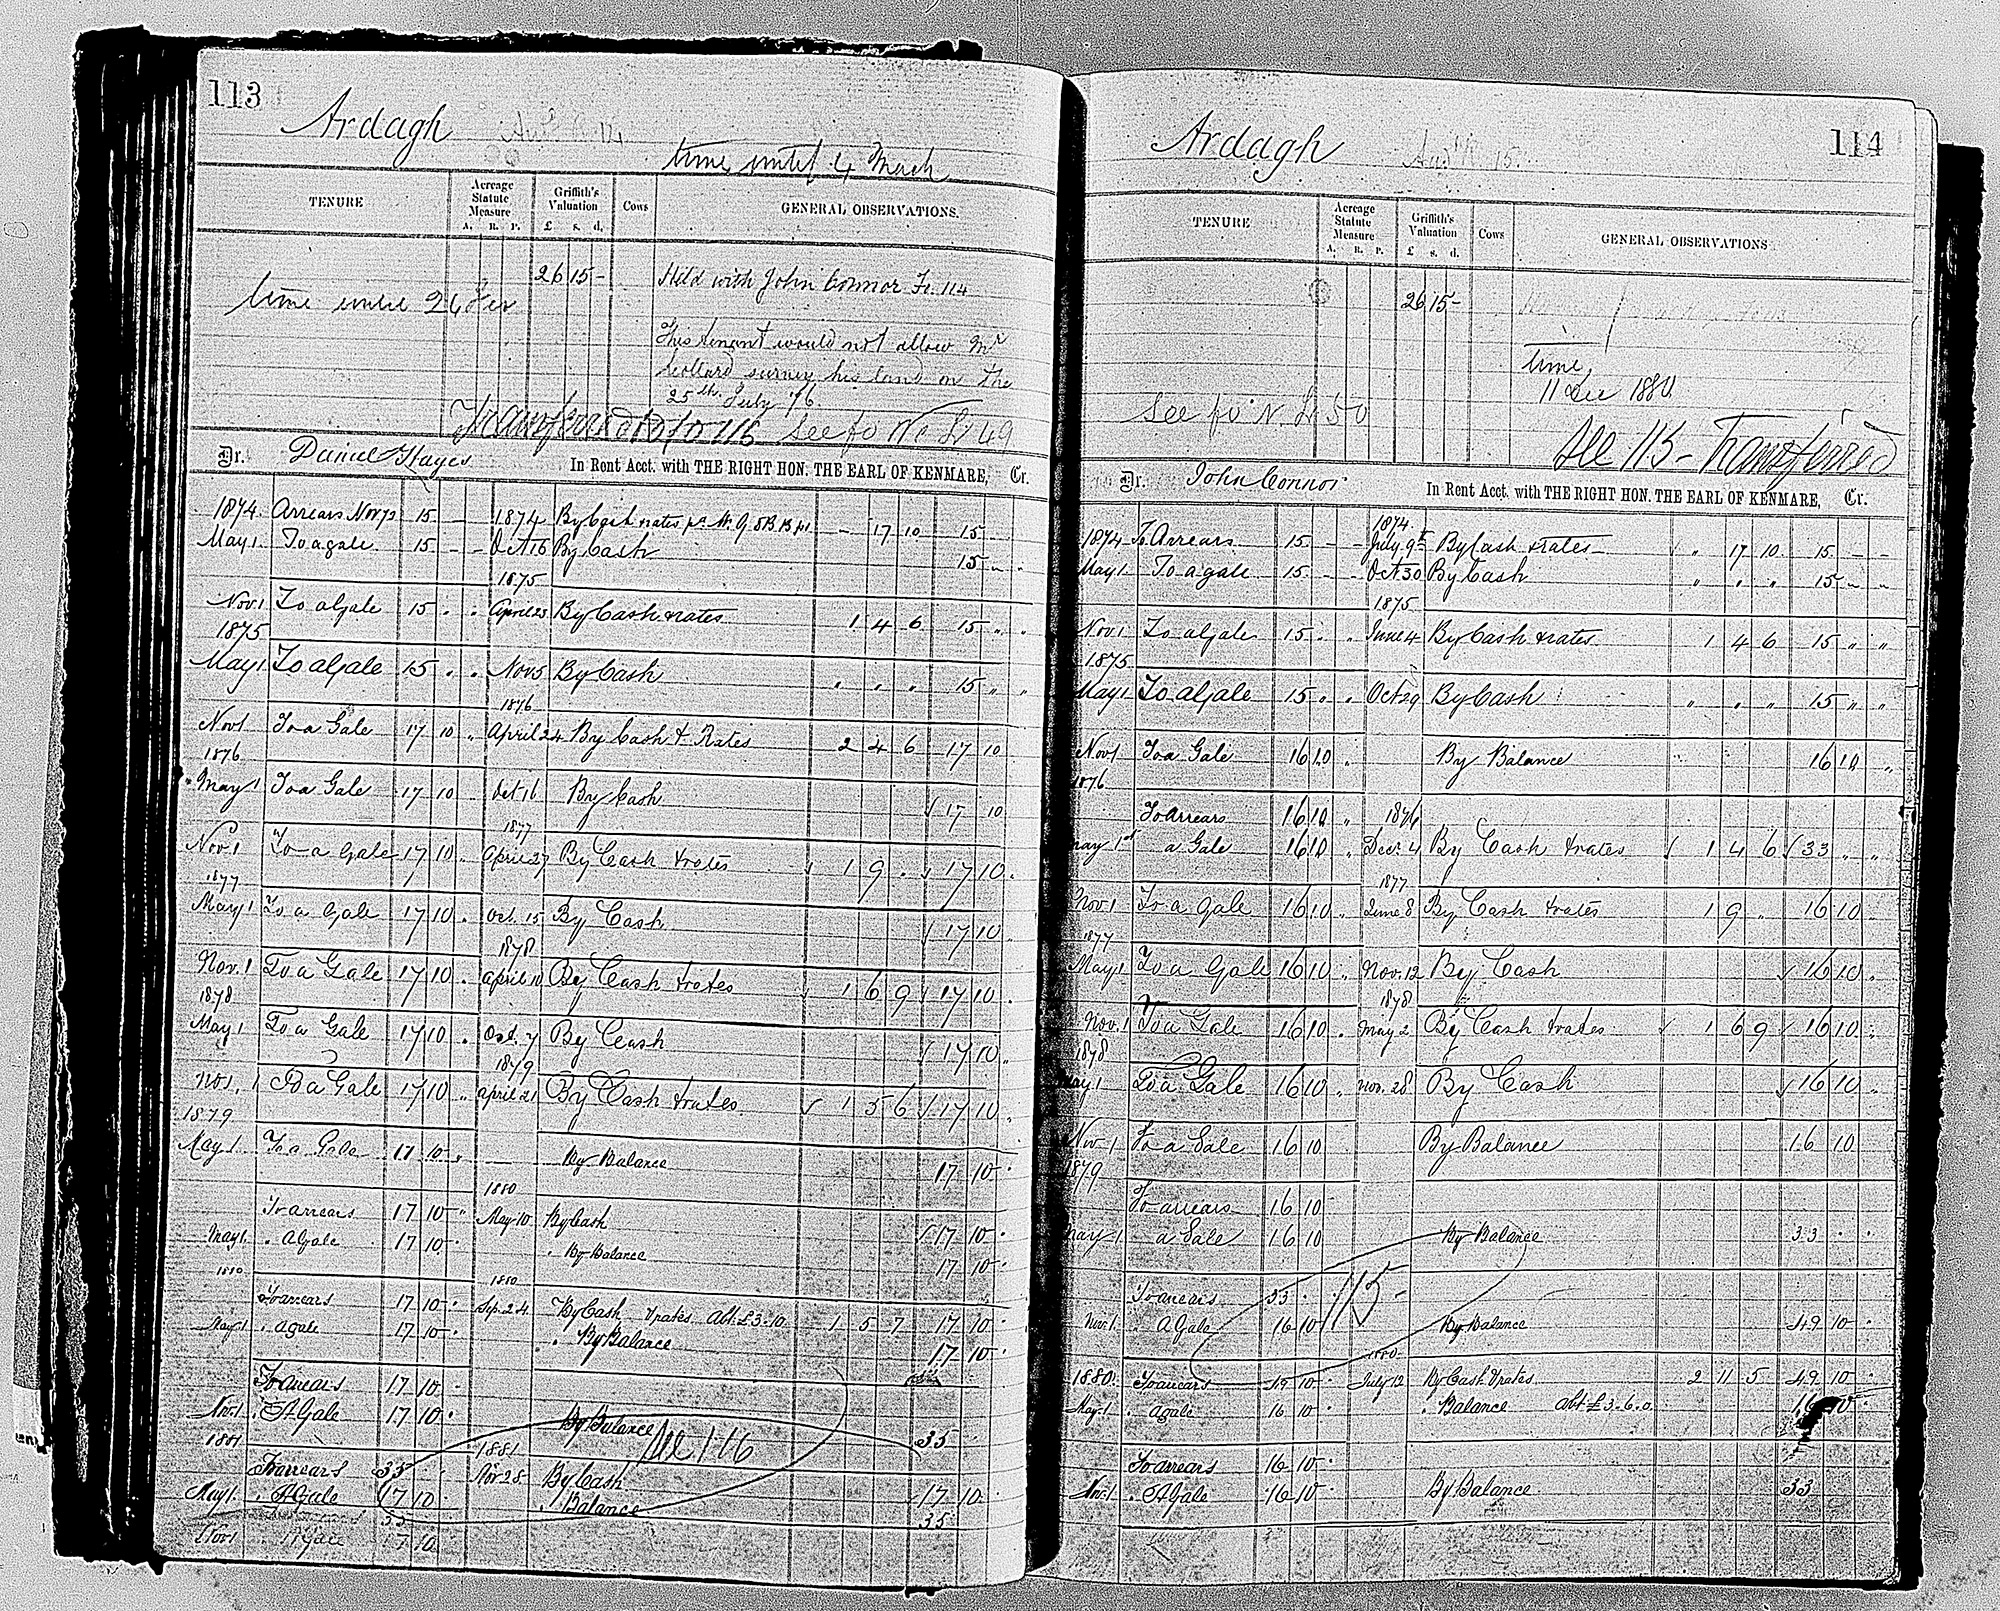 113
Ardagh
time until 4 March
TENURE
Acreage Statute Measure
A. R. P.
Griffith's Valuation
£ s. d.
Cows
GENERAL OBSERVATIONS.
26 15 -
Held with John Connor Fo. 114
time until 26
This tenant would not allow Mr
Scollard survey his land on the
25th July '76
Transferred to fo 116 see fo 49
Dr. Daniel Hayes In Rent Acct. with THE RIGHT HON. THE EARL OF KENMARE, Cr.
1874. Arrears Nov 73 15 - - 1874 By Cash & rates - 17 10 15 - -
May 1. To a gale 15 - - Oct 16 By Cash 15 - -
1875
Nov 1 To a Gale 15 " " April 23 By Cash & rates 1 4 6 15 " "
1875
May 1 To a Gale 15 " " Nov 5 By Cash " " " 15 " "
1876
Nov 1 To a Gale 17 10 " April 24 By Cash & Rates 2 4 6 17 10
1876
May 1 To a Gale 17 10 Oct 16 By Cash 17 10
1877
Nov. 1 To a Gale 17 10 April 27 By Cash & rates 1 9 . 17 10 .
1877
May 1 To a Gale 17 10 . Oct. 15 By Cash 17 10 .
1878
Nov. 1 To a Gale 17 10 . April 10 By Cash & rates 1 6 9 17 10 .
1878
May 1 To a Gale 17 10 . Oct. 7 By Cash 17 10 "
1879
Nov. 1 To a Gale 17 10 " April 21 By Cash & rates 1 5 6 17 10 "
1879
May 1. To a Gale 17 10 " — By Balance 17 10 .
1880
To arrears 17 10 " May 10 By Cash 17 10 .
May 1 . A Gale 17 10 . " By Balance 17 10 .
1880 1880
To arrears 17 10 . Sep. 24 By Cash & rates Abt. £3.10 1 5 7 17 10 .
May 1 . A gale 17 10 . " By Balance 17 10 .
To arrears 17 10 .
Nov. 1 . A Gale 17 10 . By Balance 35
See 116
1881 1881
To arrears 35 Nov 28 By Cash 17 10 .
May 1 . A Gale 17 10 . " Balance 35
35
Nov 1 A Gale 17 10
114
Ardagh
TENURE
Acreage Statute Measure
A. R. P.
Griffith's Valuation
£ s. d.
Cows
GENERAL OBSERVATIONS
26 15 -
time
11 Dec 1880.
See fo 50
See 115 - Transferred
Dr. John Connor In Rent Acct. with THE RIGHT HON. THE EARL OF KENMARE, Cr.
1874.
1874 To Arrears 15 - - July 9th By Cash & rates " 17 10 15 - -
May 1. To a gale 15 - - Oct 30 By Cash " " " 15 " "
1875
Nov 1 To a Gale 15 " " June 4 By Cash & rates 1 4 6 15 " "
1875
May 1 To a Gale 15 " " Oct 29 By Cash " " " 15 " "
Nov 1 To a Gale 16 10 " By Balance 16 10 "
1876
To Arrears 16 10 " 1876
May 1st a Gale 16 10 " Dec. 4 By Cash & rates 1 4 6 33 " "
1877
Nov 1 To a Gale 16 10 " June 8 By Cash & rates 1 9 " 16 10 .
1877
May 1 To a Gale 16 10 " Nov. 12 By Cash 16 10 .
1878
Nov. 1 To a Gale 16 10 " May 2 By Cash & rates 1 6 9 16 10 "
1878
May 1 To a Gale 16 10 " Nov. 28 By Cash 16 10 "
Nov. 1 To a Gale 16 10 By Balance 16 10
1879
To arrears 16 10
May 1. a Gale 16 10 By Balance 33 . .
115
To arrears 33 .
Nov. 1. . A Gale 16 10 By Balance 49 10 .
1880
1880. To arrears 49 10 . July 12 By Cash & rates 2 11 5 49 10 .
May 1 . A gale 16 10 . " Balance Abt £3.6.0 16 10
To arrears 16 10 .
Nov. 1 . A Gale 16 10 . By Balance 33